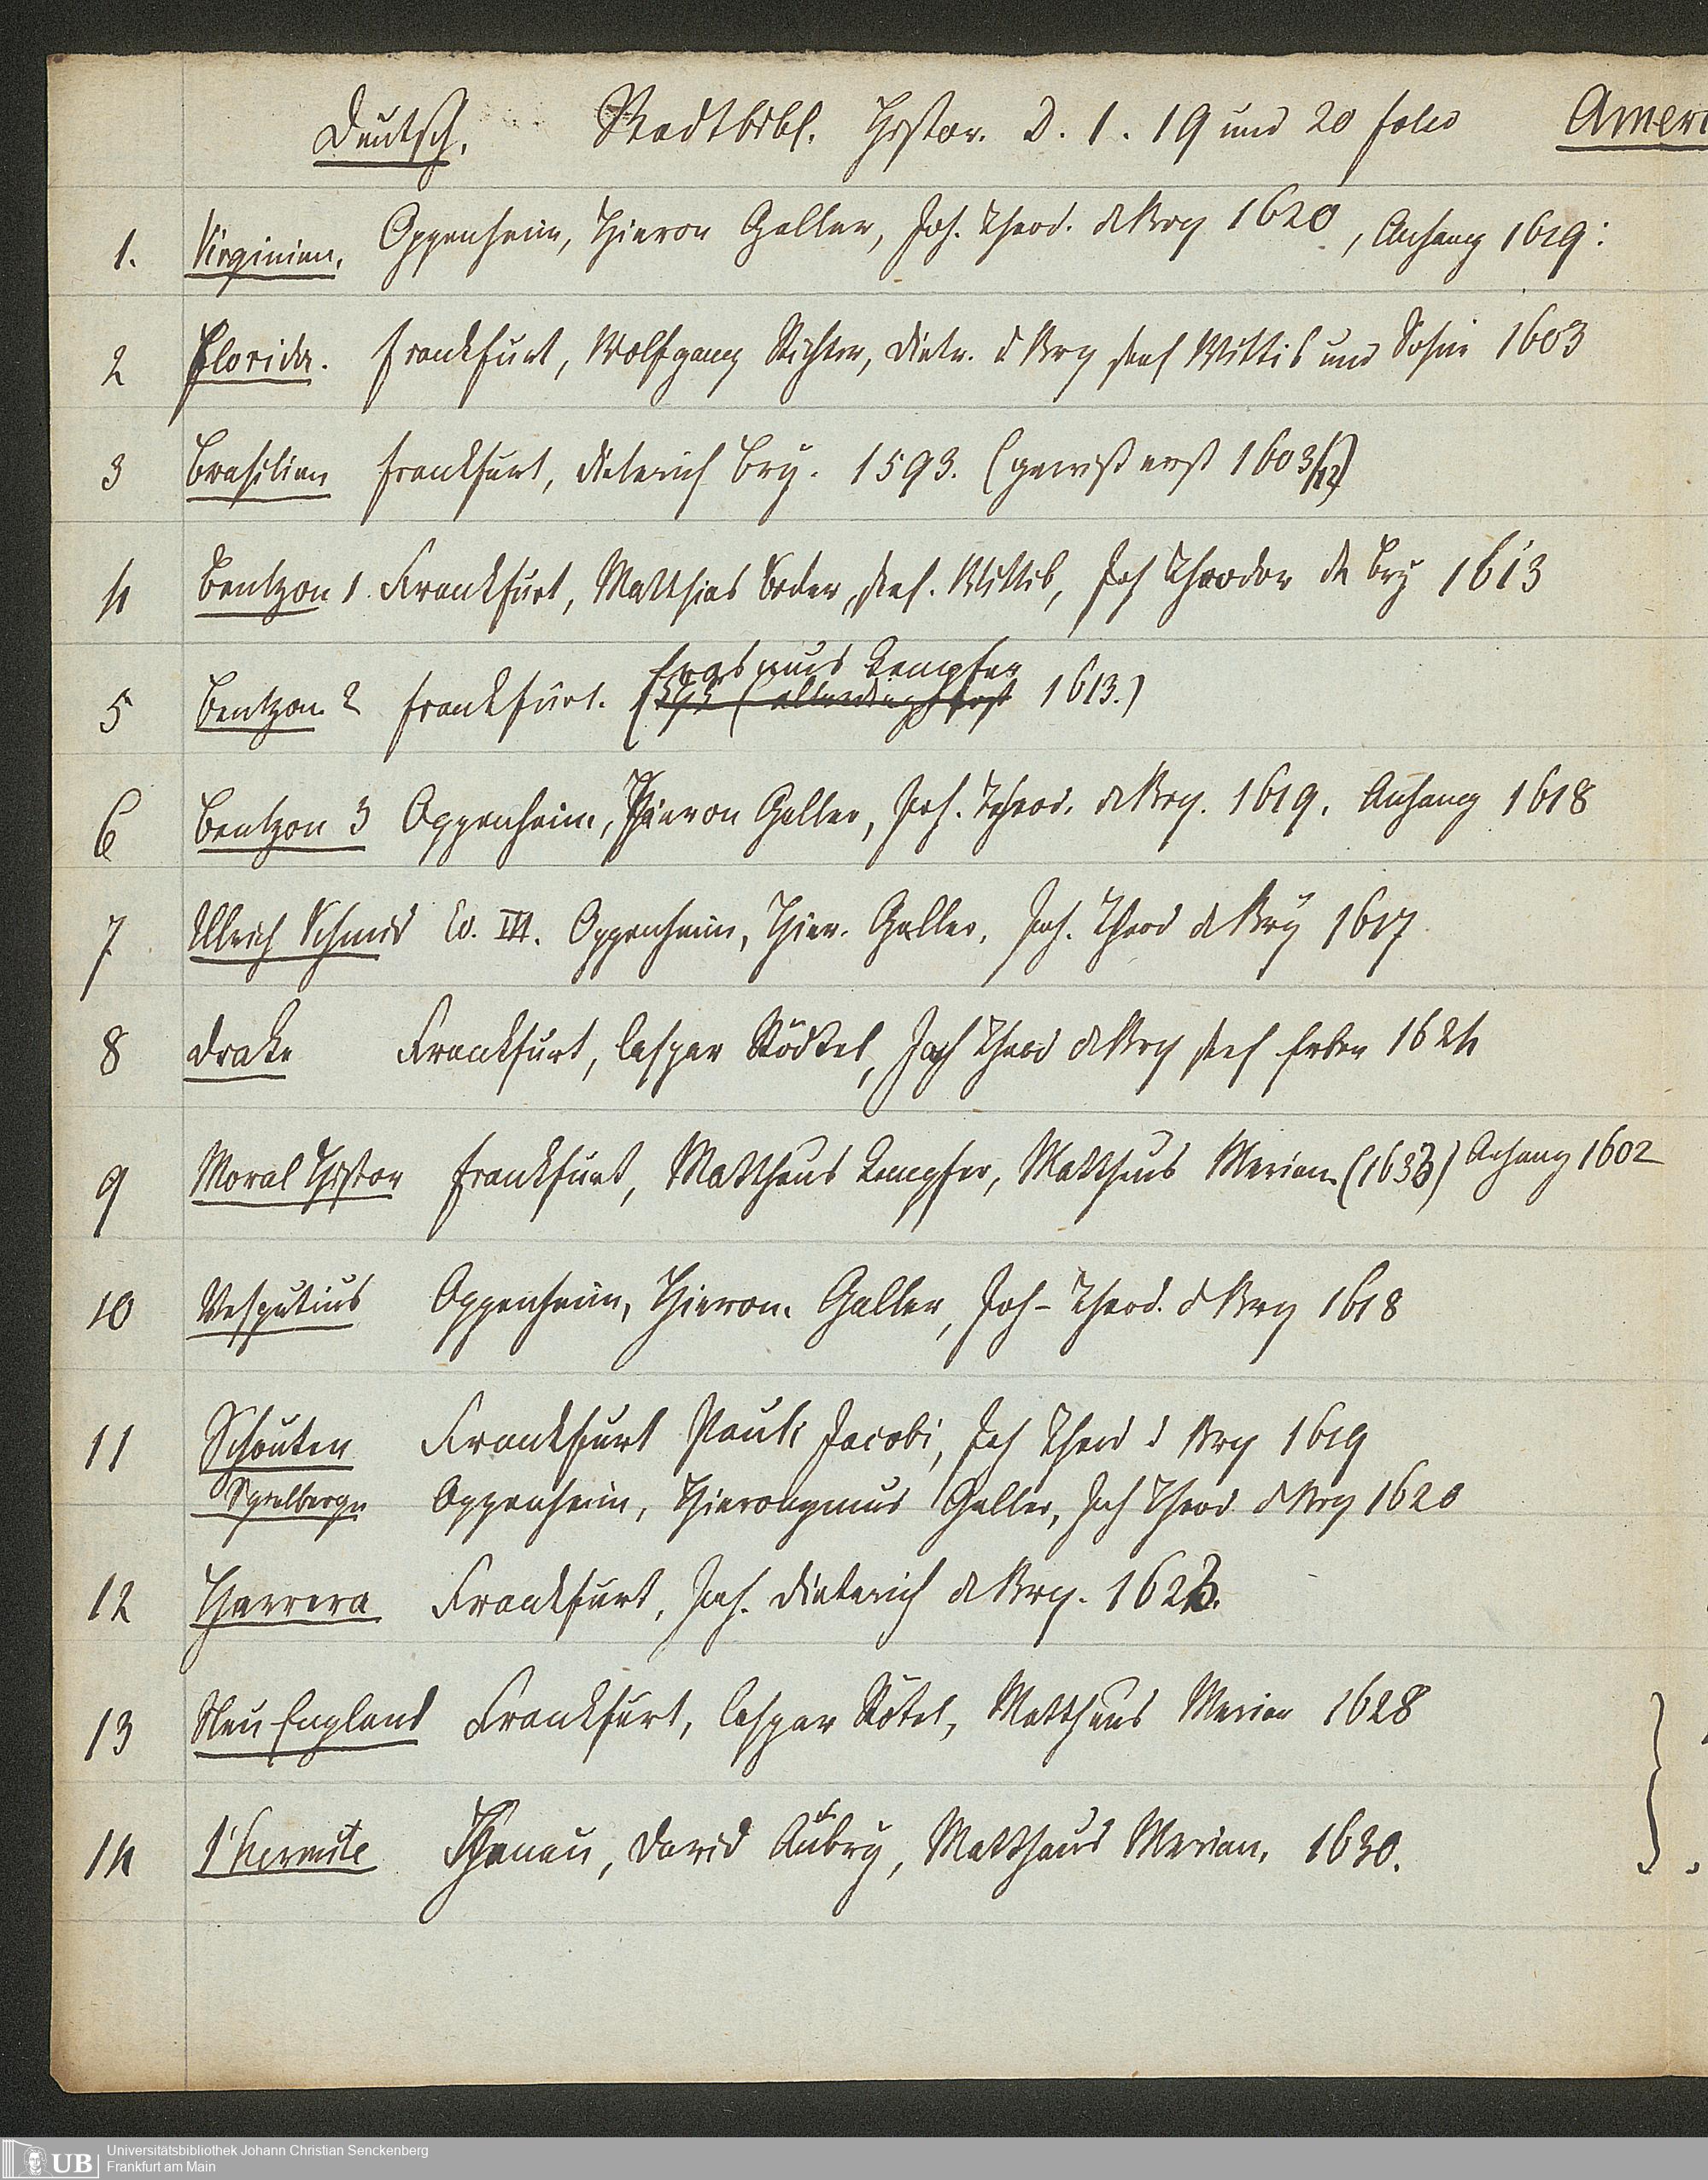 Deutsch. Stadtbibl. Histor. D. 1. 19 und 20 folio Ameri
1. Virginien. Oppenheim, Hieron Galler, Joh. Theod. de Bry 1620, Anhang 1619:
2 Florida. Frankfurt, Wolfgang Richter, Dietr. d Bry seel Wittib und Söhne 1603
3 Brasilien Frankfurt, Dieterich Bry. 1593. (gewiß erst 1603/12)
4 Bentzon 1. Frankfurt, Matthias Becker, seel. Wittib, Joh Theodor de Bry 1613
Erasmus Kempfer
5 Bentzon. 2 Frankfurt. (allerdings erst 1613.)
6 Bentzon 3 Oppenheim, Hieron Galler, Joh. Theod. de Bry. 1619. Anhang 1618
7 Ulrich Schmid Ed. III. Oppenheim, Hier. Galler, Joh. Theod de Bry 1617
8 Drake Frankfurt, Caspar Rödtel, Joh Theod de Bry seel Erben 1624
9 Moral Histor Frankfurt, Matthæus Kempfer, Matthæus Merian. (1633) Anhang 1602
10 Vesputius Oppenheim, Hieron. Galler, Joh- Theod. d Bry 1618
11 Schouten Frankfurt Pauli Jacobi, Joh Theod d Bry 1619
Spielbergen Oppenheim, Hieronymus Galler, Joh Theod d Bry 1620
12 Herrera Frankfurt, Joh. Dieterich de Bry. 1623.
13 Neu England Frankfurt, Caspar Rötel, Matthæus Merian 1628
14 l'hermite Hanau, David Aubry, Matthæus Merian. 1630.
UB Universitätsbibliothek Johann Christian Senckenberg
Frankfurt am Main